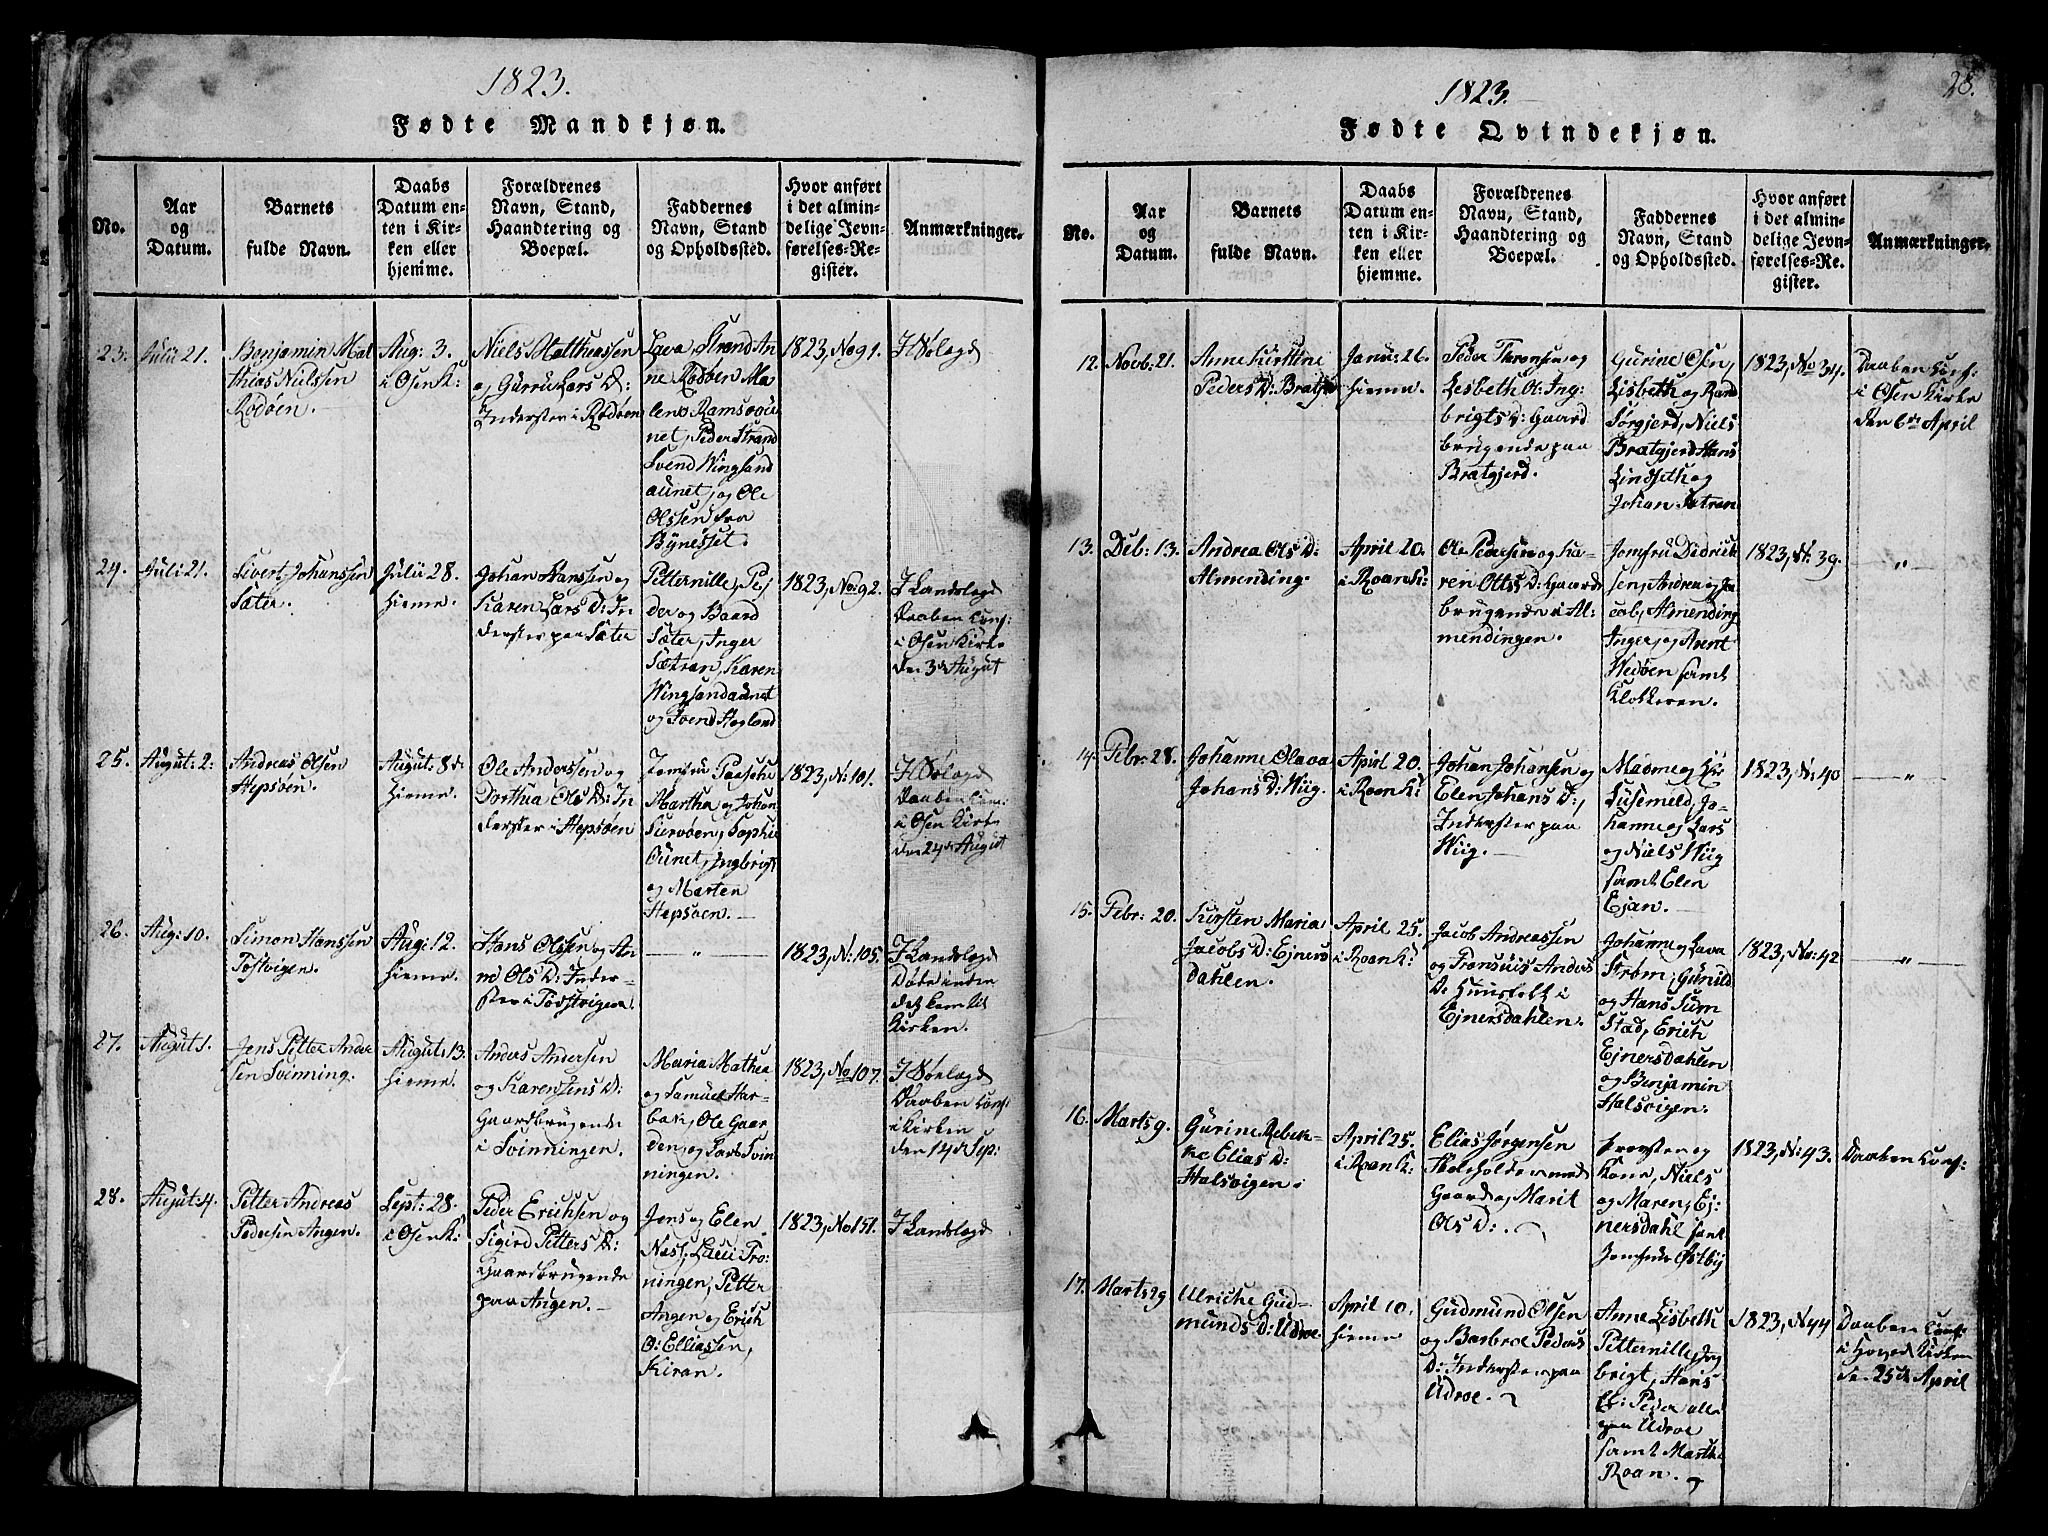 1823.
Fødte Mandkjøn.
No.
Aar
og
Datum.
Barnets
fulde Navn.
Daabs
Datum en-
ten i Kir-
ken eller
hjemme.
Forældrenes
Navn, Stand,
Haandtering og
Boepæl.
Faddernes
Navn, Stand
og Opholdssted.
Hvor anført
i det almin-
delige Jevn-
førelses-Re-
gister.
Anmærkninger.
23.
Julii 21.
Benjamin Mat
thias Nielssen
Rodøen.
Aug: 3.
i Osen K:
Niels Matthiassen
og Gurru Lars D:
Inderster i Rodøen
Lava Strand An
ne Rodøen Ma
lena Ramsøou
net, Peder Strand
Svend Wingsand
aunet, og Ole
Olssen fra
Bynesset.
1823, No 91.
I Sølagd
24.
Juli 21.
Sivert Johanssen
Sæter.
Julii 28.
Hieme.
Johan Hanssen og
Karen Lars D: In-
derster paa Sæter
Petternille, Pe-
der og Baard
Sæter, Inger
Sætran, Karen
Wingsandaunet
og Svend Hogland
1823, No: 92.
I Landslagd
Daaben Conf:
i Osen Kirke
den 3d August
25.
August: 2:
Andreas Olsen
Hepsøen.
August: 8d
Hieme.
Ole Anderssen og
Dorthea Ols D: In
derster i Hepsøen
Jomfru Paasche
Martha og Johan
Siervøen, Sophie
Ounet, Ingbrigt
og Morten
Hepsøen.
1823, N: 101.
I Sølagd
Daaben Conf:
i Osen Kirke
den 24d August
26.
Aug: 10.
Simon Hanssen
Tøstvigen.
Aug: 12.
Hieme.
Hans Olssen og An
ne Ols D: Inder-
ster i Tøstvigen.
— „ —
1823, N: 105.
I Landslagd
Døde inden
det kom til
Kirken.
27.
August 1.
Jens Petter Ander
sen Svinning.
August: 13.
Hieme.
Anders Andersen
og Karen Jens D:
Gaardbrugende
i Svinningen.
Maria Mathea
og Samuel Har-
bak, Ole Gaar
den, og Lars Svin
ningen.
1823, No 107.
I Sølagd
Daaben Conf:
i Kirken
den 14d Sep:
28.
August: 4.
Petter Andreas
Pedersen Angen.
Sept: 28.
i Osen K:
Peder Erichsen og
Sigrid Petters D:
Gaardbrugende
paa Angen.
Jens og Elen
Næss, Lucci Tro-
ningen, Petter
Angen og Erich
O: Elliassen,
Kiran.
1823, No 151.
I Landslagd
1823.
28.
Fødte Qvindekjøn.
No.
Aar
og
Datum.
Barnets
fulde Navn.
Daabs
Datum en-
ten i Kir-
ken eller
hjemme.
Forældrenes
Navn, Stand,
Haandtering og
Boepæl.
Faddernes
Navn, Stand
og Opholdssted.
Hvor anført
i det almin-
delige Jevn-
førelses-Re-
gister.
Anmærkninger.
12.
Novb: 21.
Anne Kirstine
Peders D: Bratgr
Janu: 26.
Hieme.
Peder Thronsen og
Lisbeth O: Ing
brigts D: Gaard
brugende paa
Bratgjerd.
Gurine Osen,
Lisbeth og Rand
Sørgjerd, Niels
Bratgjerd, Hans
Lindseth og
Johan Sætran
1823, No 34.
Daaben Conf.
i Osen Kirke
den 6te April
13.
Deb: 13.
Andrea Ols D:
Almending.
April 20.
i Roan K:
Ole Pedersen og Ka
ren Otts D: Gaard
brugende i Al:
mendingen.
Jomfru Didrick
sen, Andrea og Ja
cob, Almending
Inger, og Arent
Wedøen samt
Klokkeren.
1823, N: 39.
— „ —
14.
Febr: 28.
Johanne Olava
Johans D: Wiig.
April 20.
i Roan K:
Johan Johansen og
Elen Johans D:,
Inderster paa
Wiig.
Madme og Hr
Lusemeld, Jo-
hanne og Lars
og Niels Wiig
samt Elen
Ejan.
1823, N: 40
— „ —
15.
Febr: 20.
Kirsten Maria
Jacobs D: Ejners
dahlen.
April 25.
i Roan K:
Jacob Andreassen
og Fransius Anders
D: Huusfolk i
Ejnersdahlen.
Johanne og Lava
Strøm, Gunild
og Hans Sum
Stad, Erich
Ejnersdahlen
og Benjamin
Halsvigen.
1823, No: 42
— „ —
16.
Marts 9.
Gurine Rebek-
ke Elias D:
Halsvigen.
April 25.
i Roan K:
Elias Jørgensen
Gaard og Marit
Ols D:
Provsten og
Kone, Niels
og Maren, Ej-
nersdahl samt
Jomfrue Østbÿ
1823, N: 43.
Daaben Conf:
17.
Marts 29
Ulriche Gud-
munds D: Udroe.
April 10.
Hieme
Gudmund Olsen
og Barbroe Peders
D: Inderster paa
Udroe.
Anne Lisbeth
Petternille, Ing
brigt, Hans
Er: Peder alle
paa Udroe
samt Marthe
Roan.
1823, N 44
Daaben Conf:
i Hoved Kirken
den 25de April